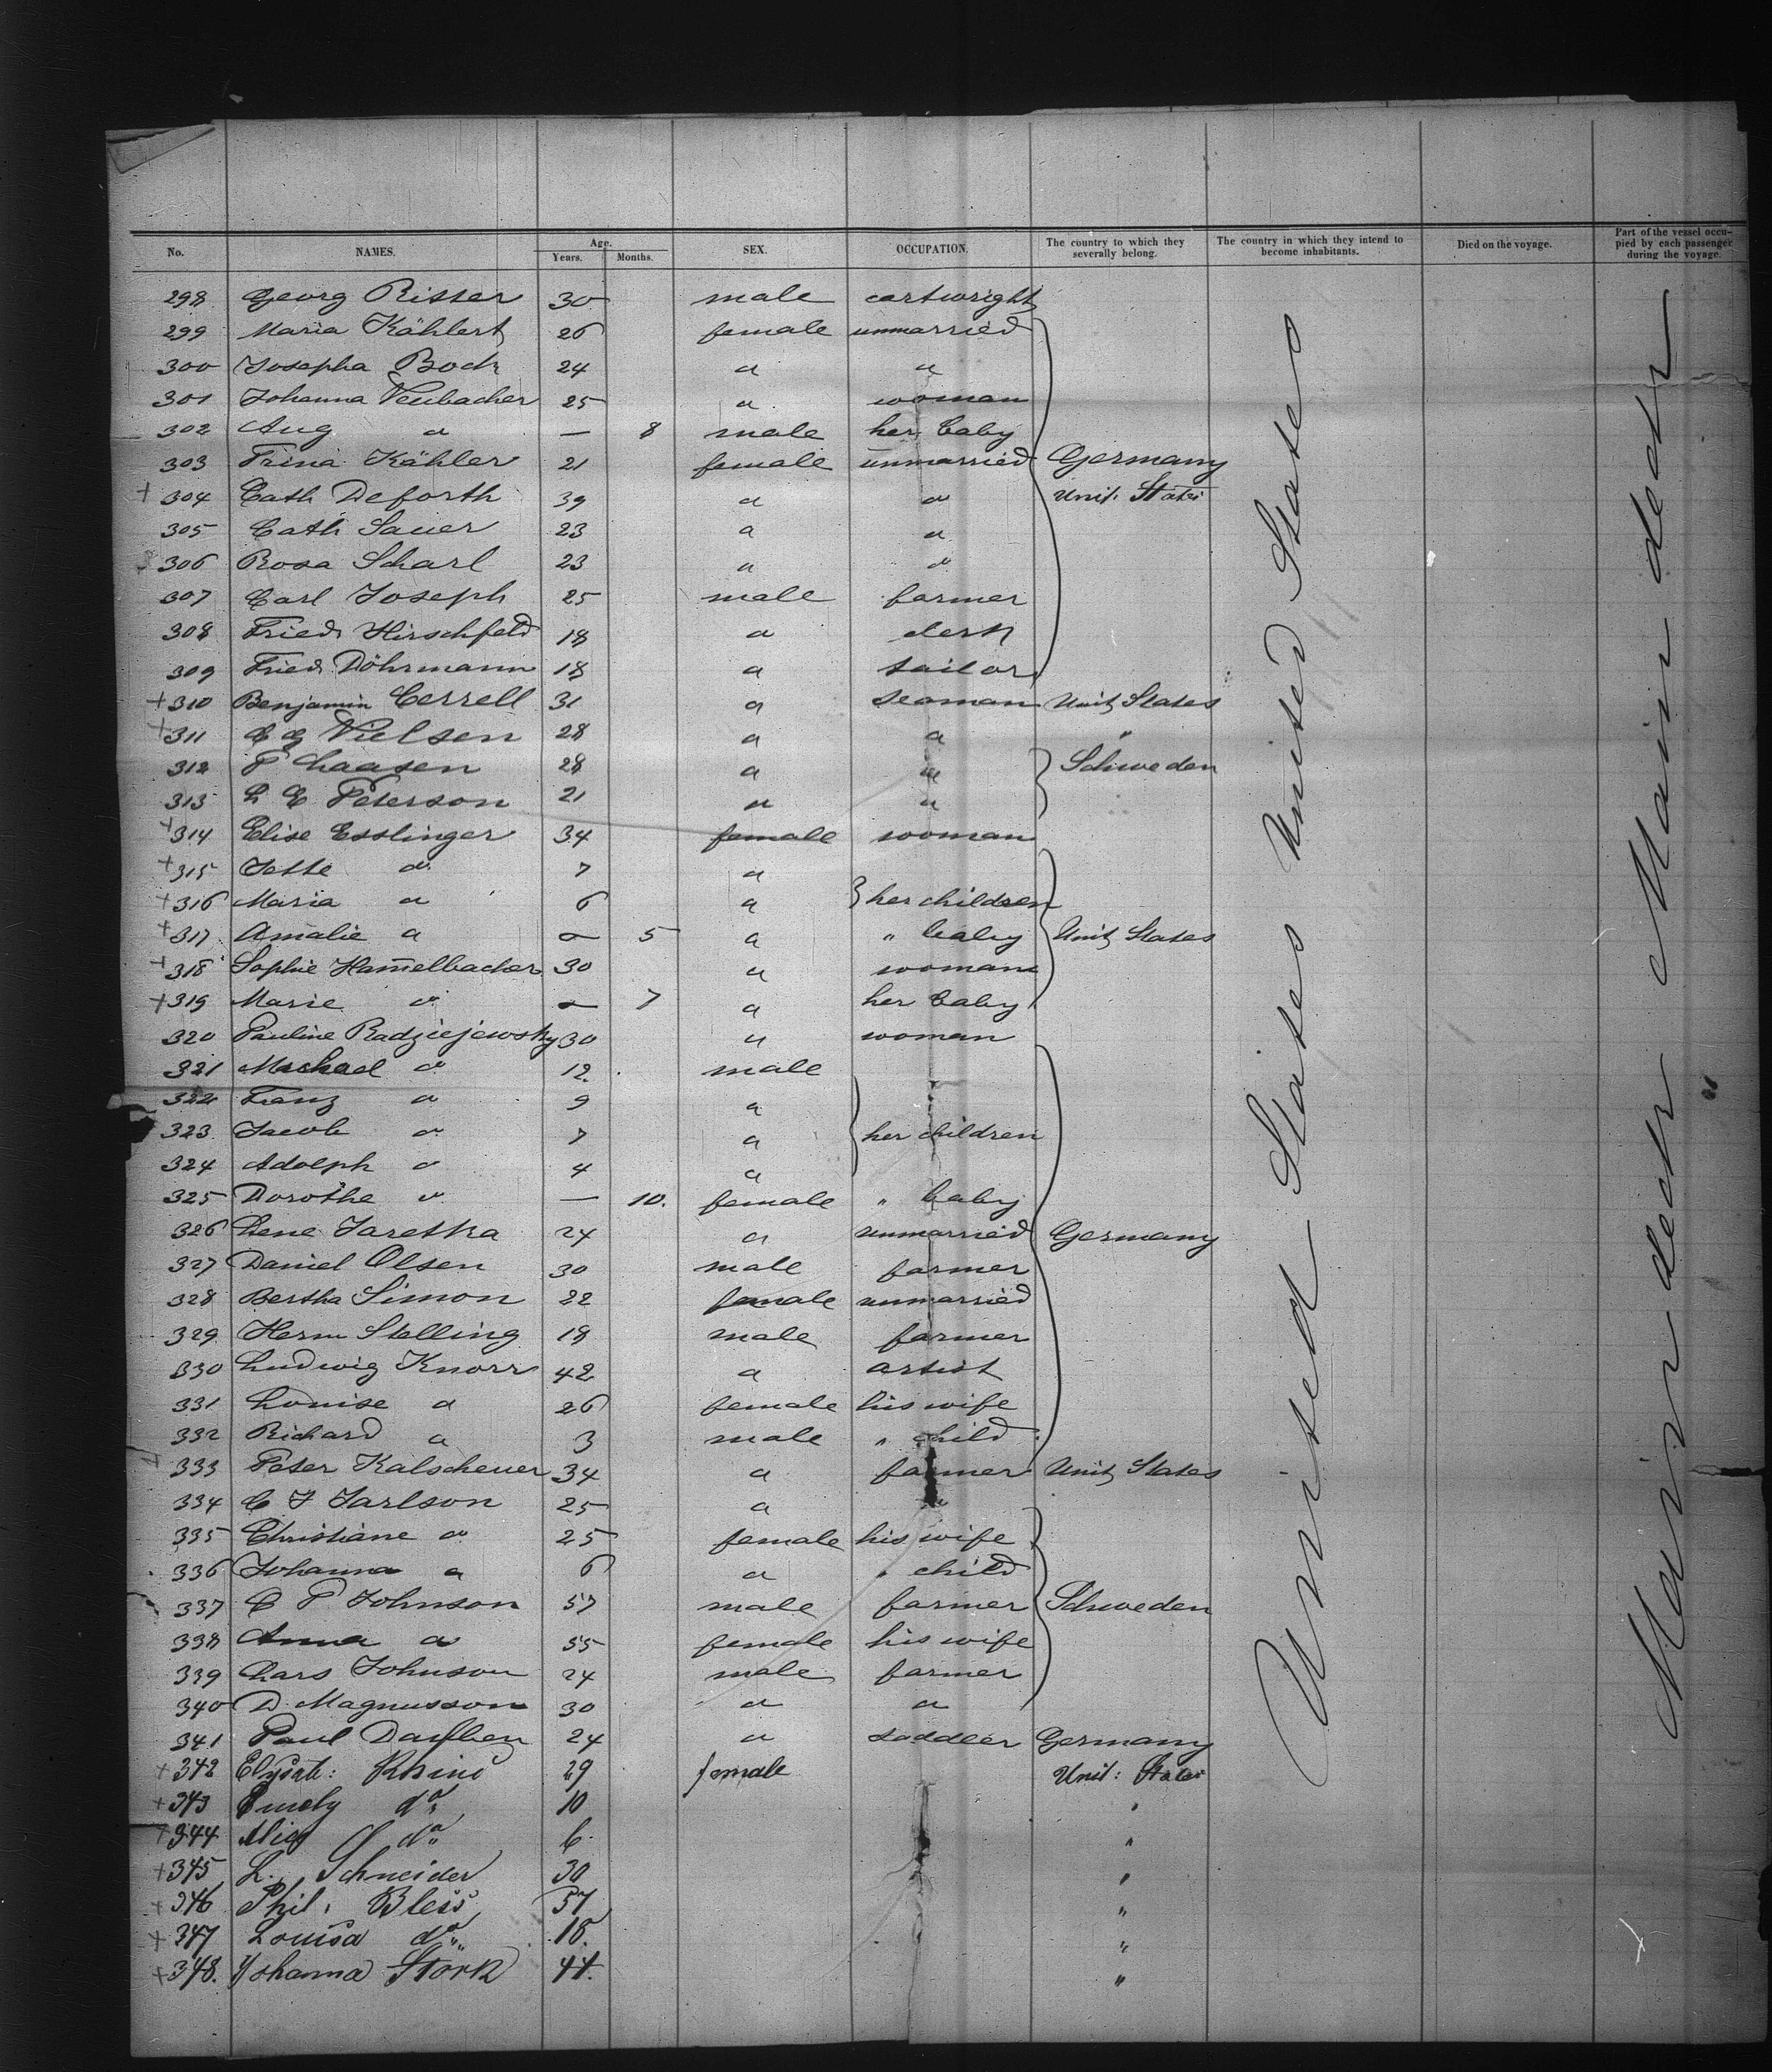 No. NAMES. Age. Years. Months. SEX. OCCUPATION. The country to which they severally belong. The country in which they intend to become inhabitants. Died on the voyage. Part of the vessel occupied by each passenger during the voyage.
298 Georg Risser 30 male cartwright
299 Maria Kählert 26 female unmarried
300 Josepha Bock 24 " "
301 Johanna Neubacher 25 " woman
302 Aug " — 8 male her baby
303 Trina Kähler 21 female unmarried Germany
+ 304 Cath Deforth 39 " " Unit. States
305 Cath Sauer 23 " "
306 Rosa Scharl 23 " "
307 Carl Joseph 25 male farmer
308 Friedr Hirschfeld 18 " clerk
309 Friedr Döhrmann 18 " tailor
+ 310 Benjamin Cerrell 31 " seaman Unit States
+ 311 Nielsen 28 " " "
312 P Claasen 28 " " Schweden
313 L E Peterson 21 " "
+ 314 Elise Esslinger 34 female woman
+ 315 Jette " 7 "
+ 316 Maria " 6 " her children
+ 317 Amalie " — 5 " " baby Unit States
+ 318 Sophie Ham̄elbacher 30 " woman
+ 319 Marie " — 7 " her baby
320 Pauline Radziejewsky 30 " woman
321 Michael " 12 male
322 Franz " 9 "
323 Jacob " 7 " her children
324 Adolph " 4 "
325 Dorothe " — 10. female " baby
326 Lene Jaretka 24 " unmarried Germany
327 Daniel Olsen 30 male farmer
328 Bertha Simon 22 female unmarried
329 Herm Stelling 18 male farmer
330 Ludwig Knorr 42 " artist
331 Louise " 26 female his wife
332 Richard " 3 male " child
333 Peter Kalscheuer 34 " farmer Unit States
334 C F Jarlson 25 " "
335 Christiane " 25 female his wife
336 Johanna " 6 " " child
337 C P Johnson 57 male farmer Schweden
338 Anna " 55 female his wife
339 Lars Johnson 24 male farmer
340 D Magnusson 30 " "
341 Paul 24 " saddler Germany
+ 342 29 female Unit: States
+ 343 Emely do 10 "
+ 344 do 6 "
+ 345 L. Schneider 30 "
+ 346 Phil. Bleis 57 "
+ 347 Louisa do 18. "
+ 348. Johanna Stork 44. "
United States United States
Main deck Main deck